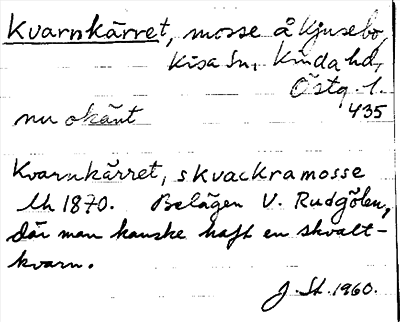 Kvarnkärret, mosse å Kjusebo,
Kisa sn, Kinda hd,
Östg. l.
435
nu okänt
Kvarnkärret, skvackramosse
Uh 1870. Belägen V. Rudgölen,
där man kanske haft en skvalt-
kvarn.
J. St. 1960.